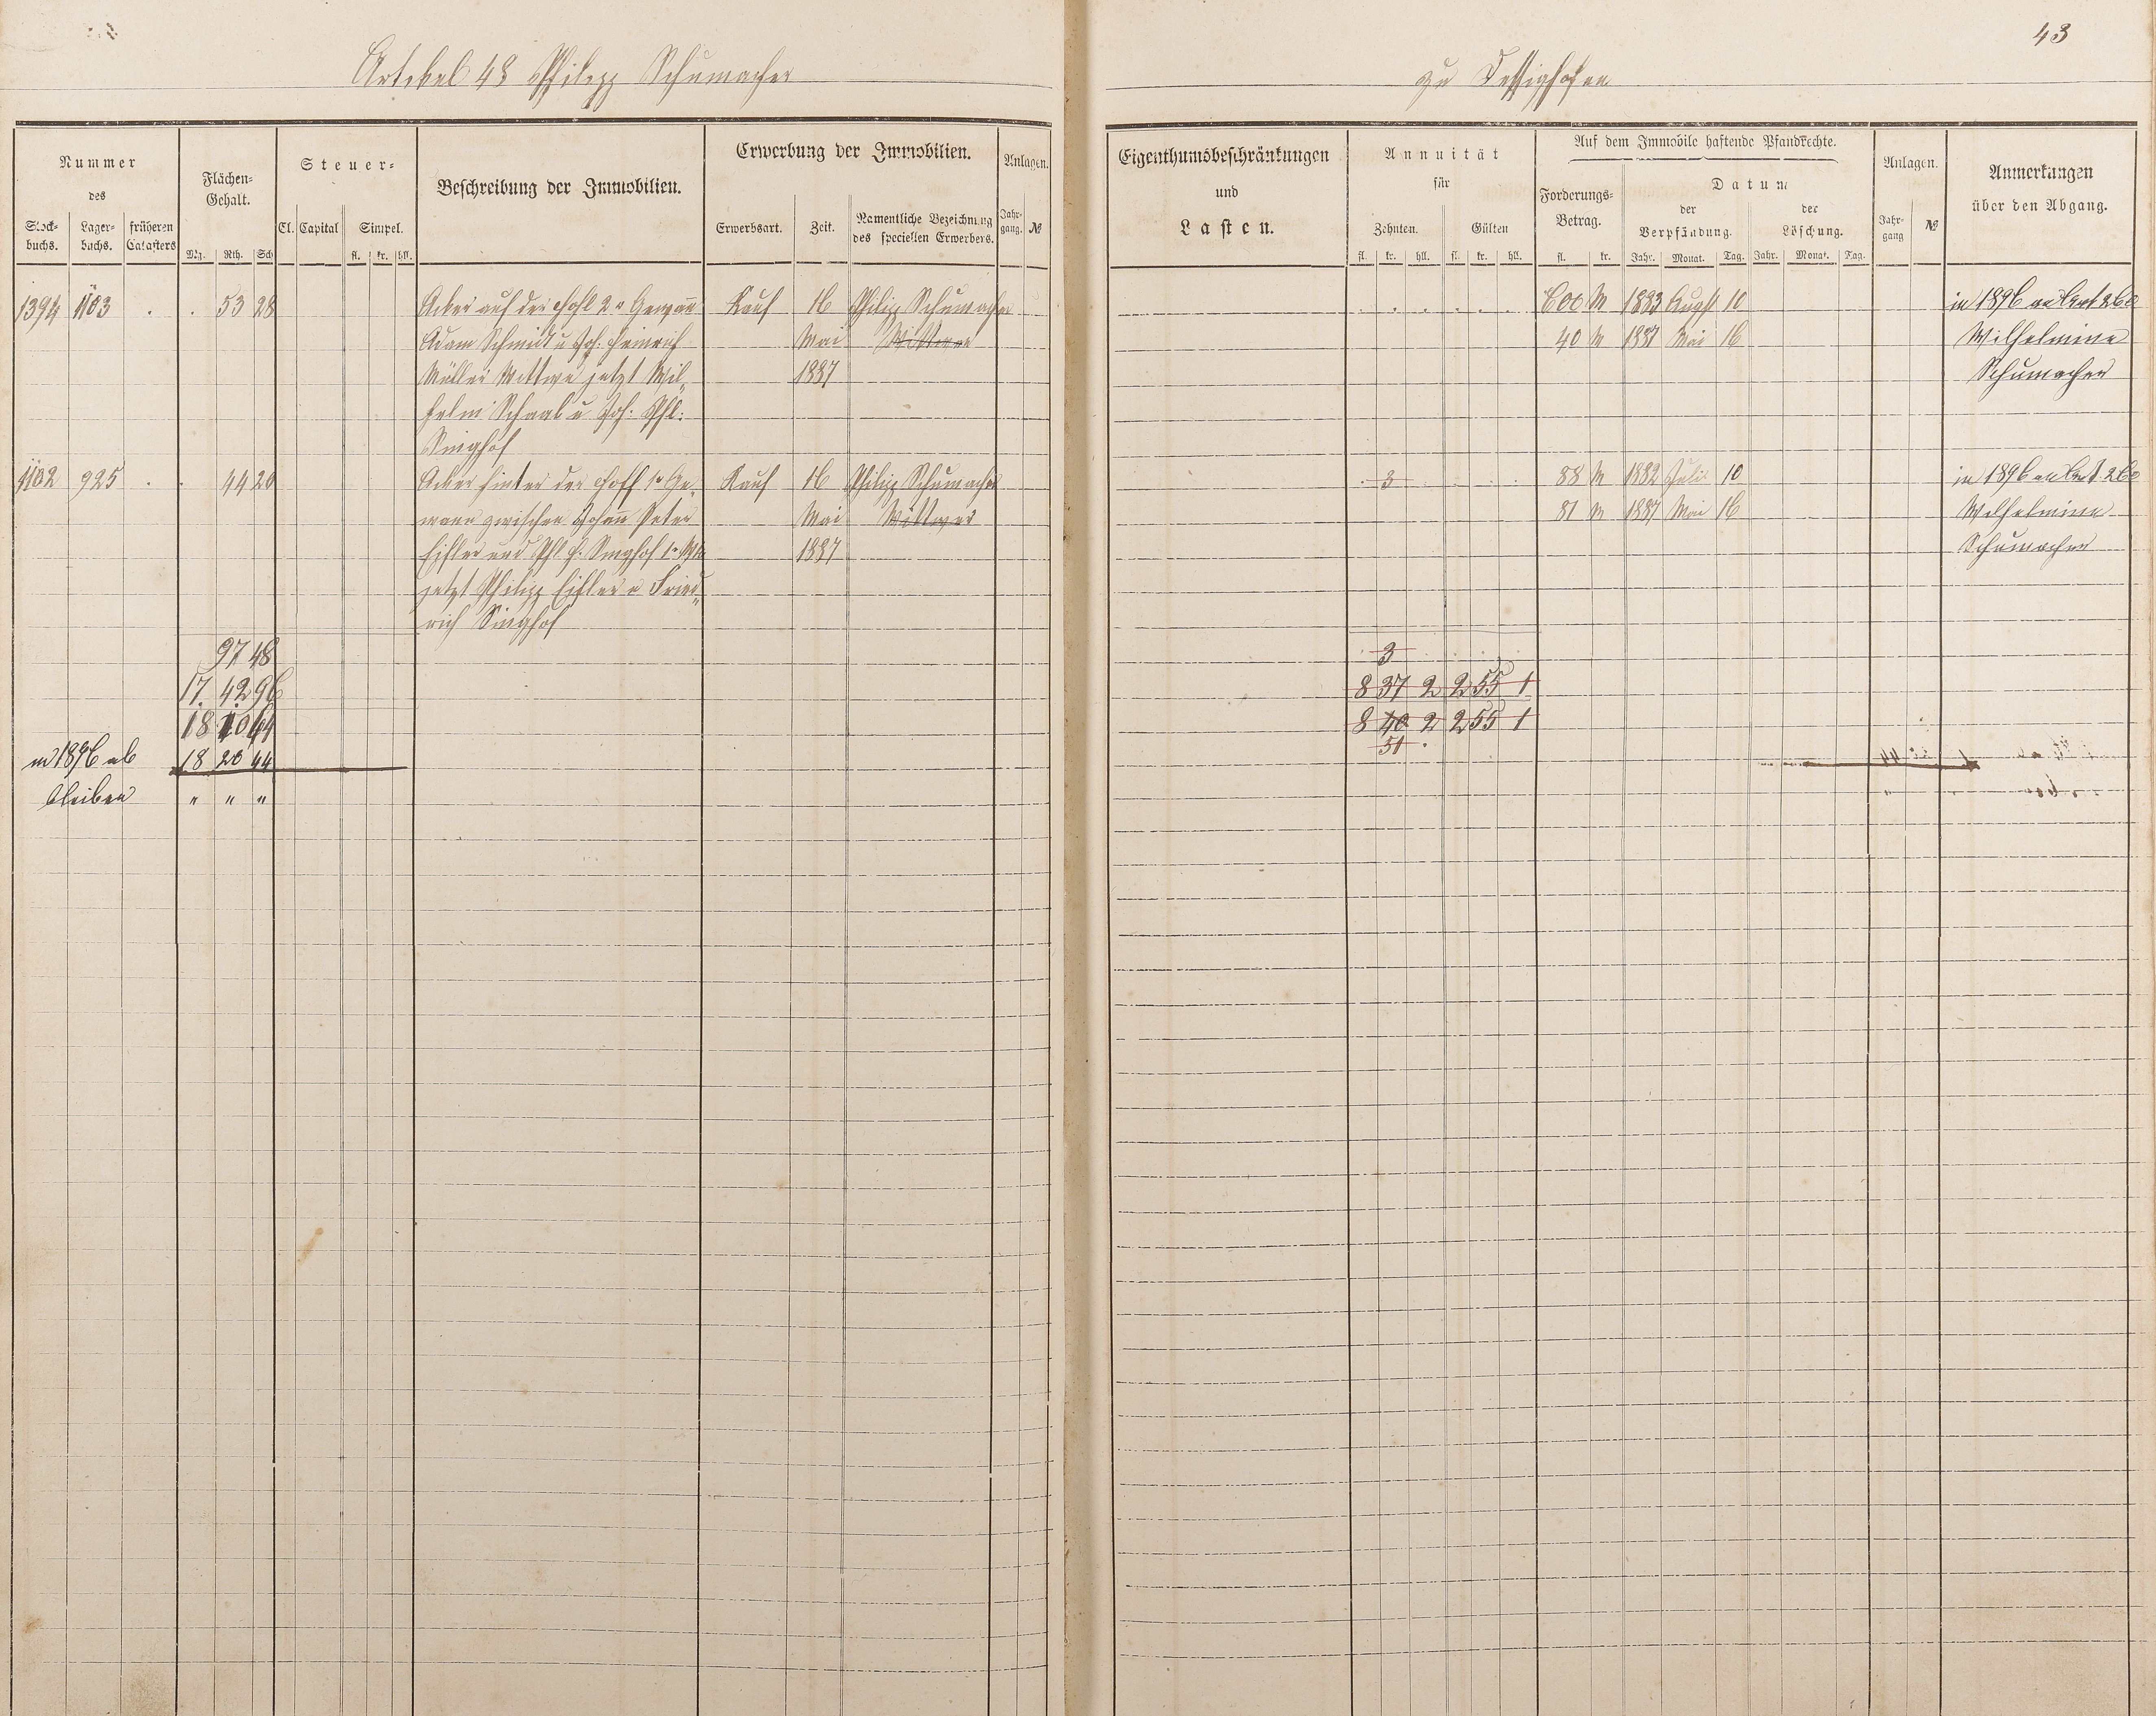 43
Artikel 43 Philipp Schumacher
zu Dessighofen
Nummer
des
Stock-
buchs.
Lager-
buchs.
früheren
Catasters
Flächen-
Gehalt.
Mg. Rth. Sch
Steuer-
Cl. Capital Simpel.
fl. kr. hll.
Beschreibung der Immobilien.
Erwerbung der Immobilien.
Erwerbsart. Zeit. Namentliche Bezeichnung
des speciellen Erwerbers.
Anlagen.
Jahr-
gang. №
Eigenthumsbeschränkungen
und
Lasten.
Annuität
für
Zehnten. Gülten
fl. kr. hll. fl. kr. hll.
Auf dem Immobile haftende Pfandrechte.
Forderungs-
Betrag.
fl. kr.
Datum
der
Verpfändung.
Jahr. Monat. Tag.
der
Löschung.
Jahr. Monat. Tag.
Anlagen.
Jahr-
gang №
Anmerkungen
über den Abgang.
1394 1103 . . 53 28 Acker auf der Hohl 2r Gewann Kauf 16 Philipp Schumacher 600 M 1883 Augst 10 in 1896 an Art 260
Adam Schmidt u Joh. Heinrich Mai Wittwer 40 M 1887 Mai 16 Wilhelmine
Müller Wittwe jetzt Wil- 1887 Schumacher
helm Schaab u Joh: Phl:
Singhof
1102 925 . . 44 20 Acker hinter der Hoff 1r Ge- Kauf 16 Philipp Schumacher 3 88 M 1882 Juli 10 in 1896 an Art. 260
wann zwischen Johann Peter Mai Wittwer 81 M 1887 Mai 16 Wilhelmine
Eisler und Phl H. Singhof 1r Wte 1887 Schumacher
jetzt Philipp Eisler u Fried-
rich Singhof
97 48 3
17. 42 96 8 37 2 2 55 1
18 40 44 8 40 2 2 55 1
51
in 1896 ab 18 20 44
bleiben " " "